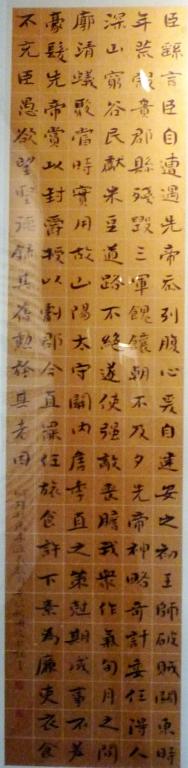 臣繇言臣自遭遇先帝忝列腹心爰自建安之初王師破賊關東時
年荒穀貴郡縣殘毀三軍餽饟朝不及夕先帝神略奇計委任得人
深山窮谷民獻米豆道路不絕遂使強敵喪膽我眾作氣旬月之間
廓清蟻聚當時實用故山陽太守關內侯季直之策剋期成事不差
豪髮先帝賞以封爵授以劇郡今直罷任旅食許下素為廉吏衣食
不充臣愚欲望聖德錄其舊勳矜其老困